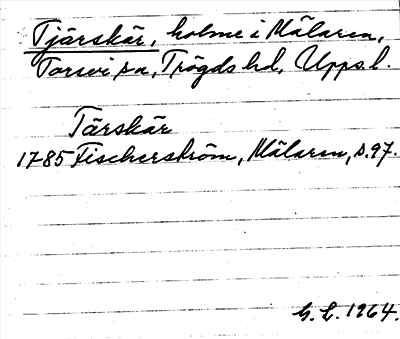 Tjärskär, holme i Mälaren,
Torsvi sn, Trögds hd, Upps.l.
Tärskär
1785 Fischerström, Mälaren, s.97.
G.L. 1964.